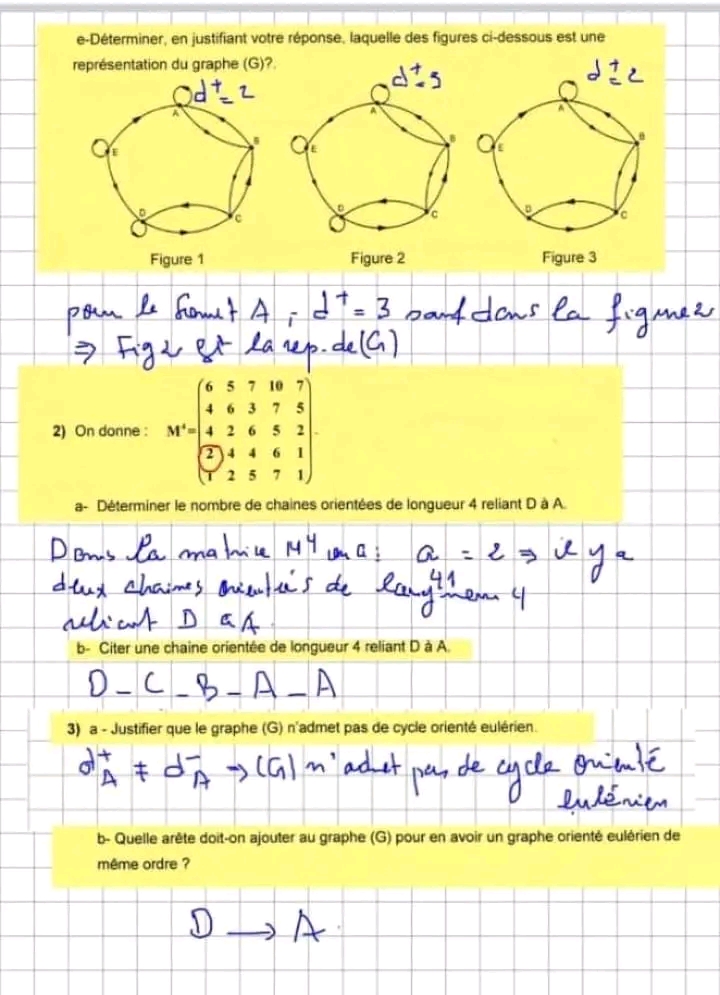 e-Déterminer, en justifiant votre réponse, laquelle des figures ci-dessous est une
représentation du graphe (G)?.
d⁺= 2 d⁺= 3 d⁺= 2
A B C D E A B C D E A B C D E
Figure 1 Figure 2 Figure 3
pour le Somet A , d⁺ = 3 sauf dans la figure 2
⇒ Fig 2 est la rep. de (G)
6 5 7 10 7
4 6 3 7 5
2) On donne : M⁴= 4 2 6 5 2 .
2 4 4 6 1
1 2 5 7 1
a- Déterminer le nombre de chaines orientées de longueur 4 reliant D à A.
Dans la matrice M⁴ on a : a₄₁ = 2 ⇒ il y a
deux chaines orientées de longueur 4
reliant D à A.
b- Citer une chaine orientée de longueur 4 reliant D à A.
D - C - B - A - A
3) a - Justifier que le graphe (G) n'admet pas de cycle orienté eulérien.
d⁺A ≠ d⁻A → (G) n'admet pas de cycle orienté
eulérien
b- Quelle arête doit-on ajouter au graphe (G) pour en avoir un graphe orienté eulérien de
même ordre ?
D → A.